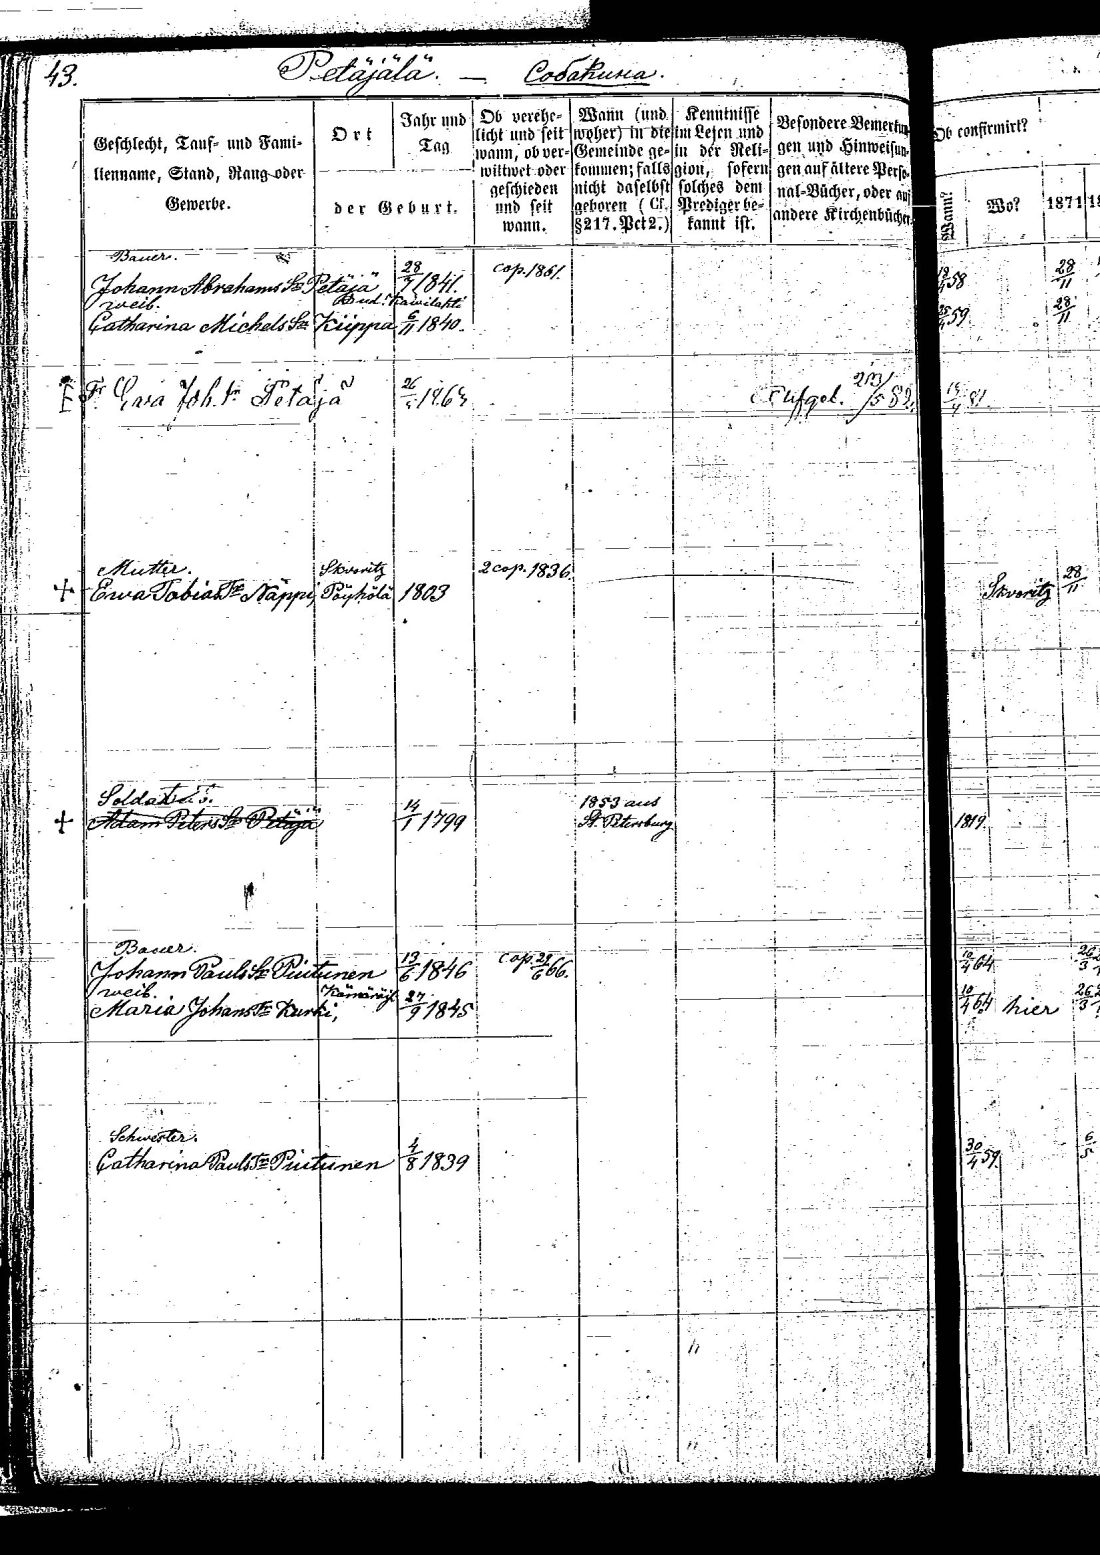 43.
Petäjälä. — Собакина.
Geschlecht, Tauf- und Fami-
lienname, Stand, Rang oder
Gewerbe.
Ort
der Geburt.
Jahr und
Tag
Ob verehe-
licht und seit
wann, ob ver-
wittwet oder
geschieden
und seit
wann.
Wann (und
woher) in die
Gemeinde ge-
kommen; falls
nicht daselbst
geboren (Cf.
§217. Pct 2.)
Kenntnisse
im Lesen und
in der Reli-
gion, sofern
solches dem
Prediger be-
kannt ist.
Besondere Bemerkun-
gen und Hinweisun-
gen auf ältere Perso-
nal-Bücher, oder auf
andere Kirchenbücher
Ob confirmirt?
Wann?
Wo?
1871
Bauer.
Johann Abrahams Sn Petäjä 28/7 1841. cop. 1861. 58 28/11
weib.
Catharina Michels Kiippa 6/11 1840. 59 28/11
Ewa Joh. tr Petäjä 186 Aufgeb. /5 82. 81.
Mutter. Skworitz 2 cop. 1836.
Ewa Tobias Tr Näppi, Pöyhölä 1803 Skworitz 28/11
Soldat
Adam Peters Sn Petäjä 14/1 1799 1853 aus
St. Petersburg 1819.
Bauer.
Johann Pauls Sn Piutunen 13/6 1846 cop. /6 66. 10/4 64 26/3
weib.
Maria Johans Tr Kurki, 27/9 1845 10/4 64 hier 26/3
Schwester.
Catharina Pauls Tr Piutunen 4/8 1839 30/4 59. 6/5